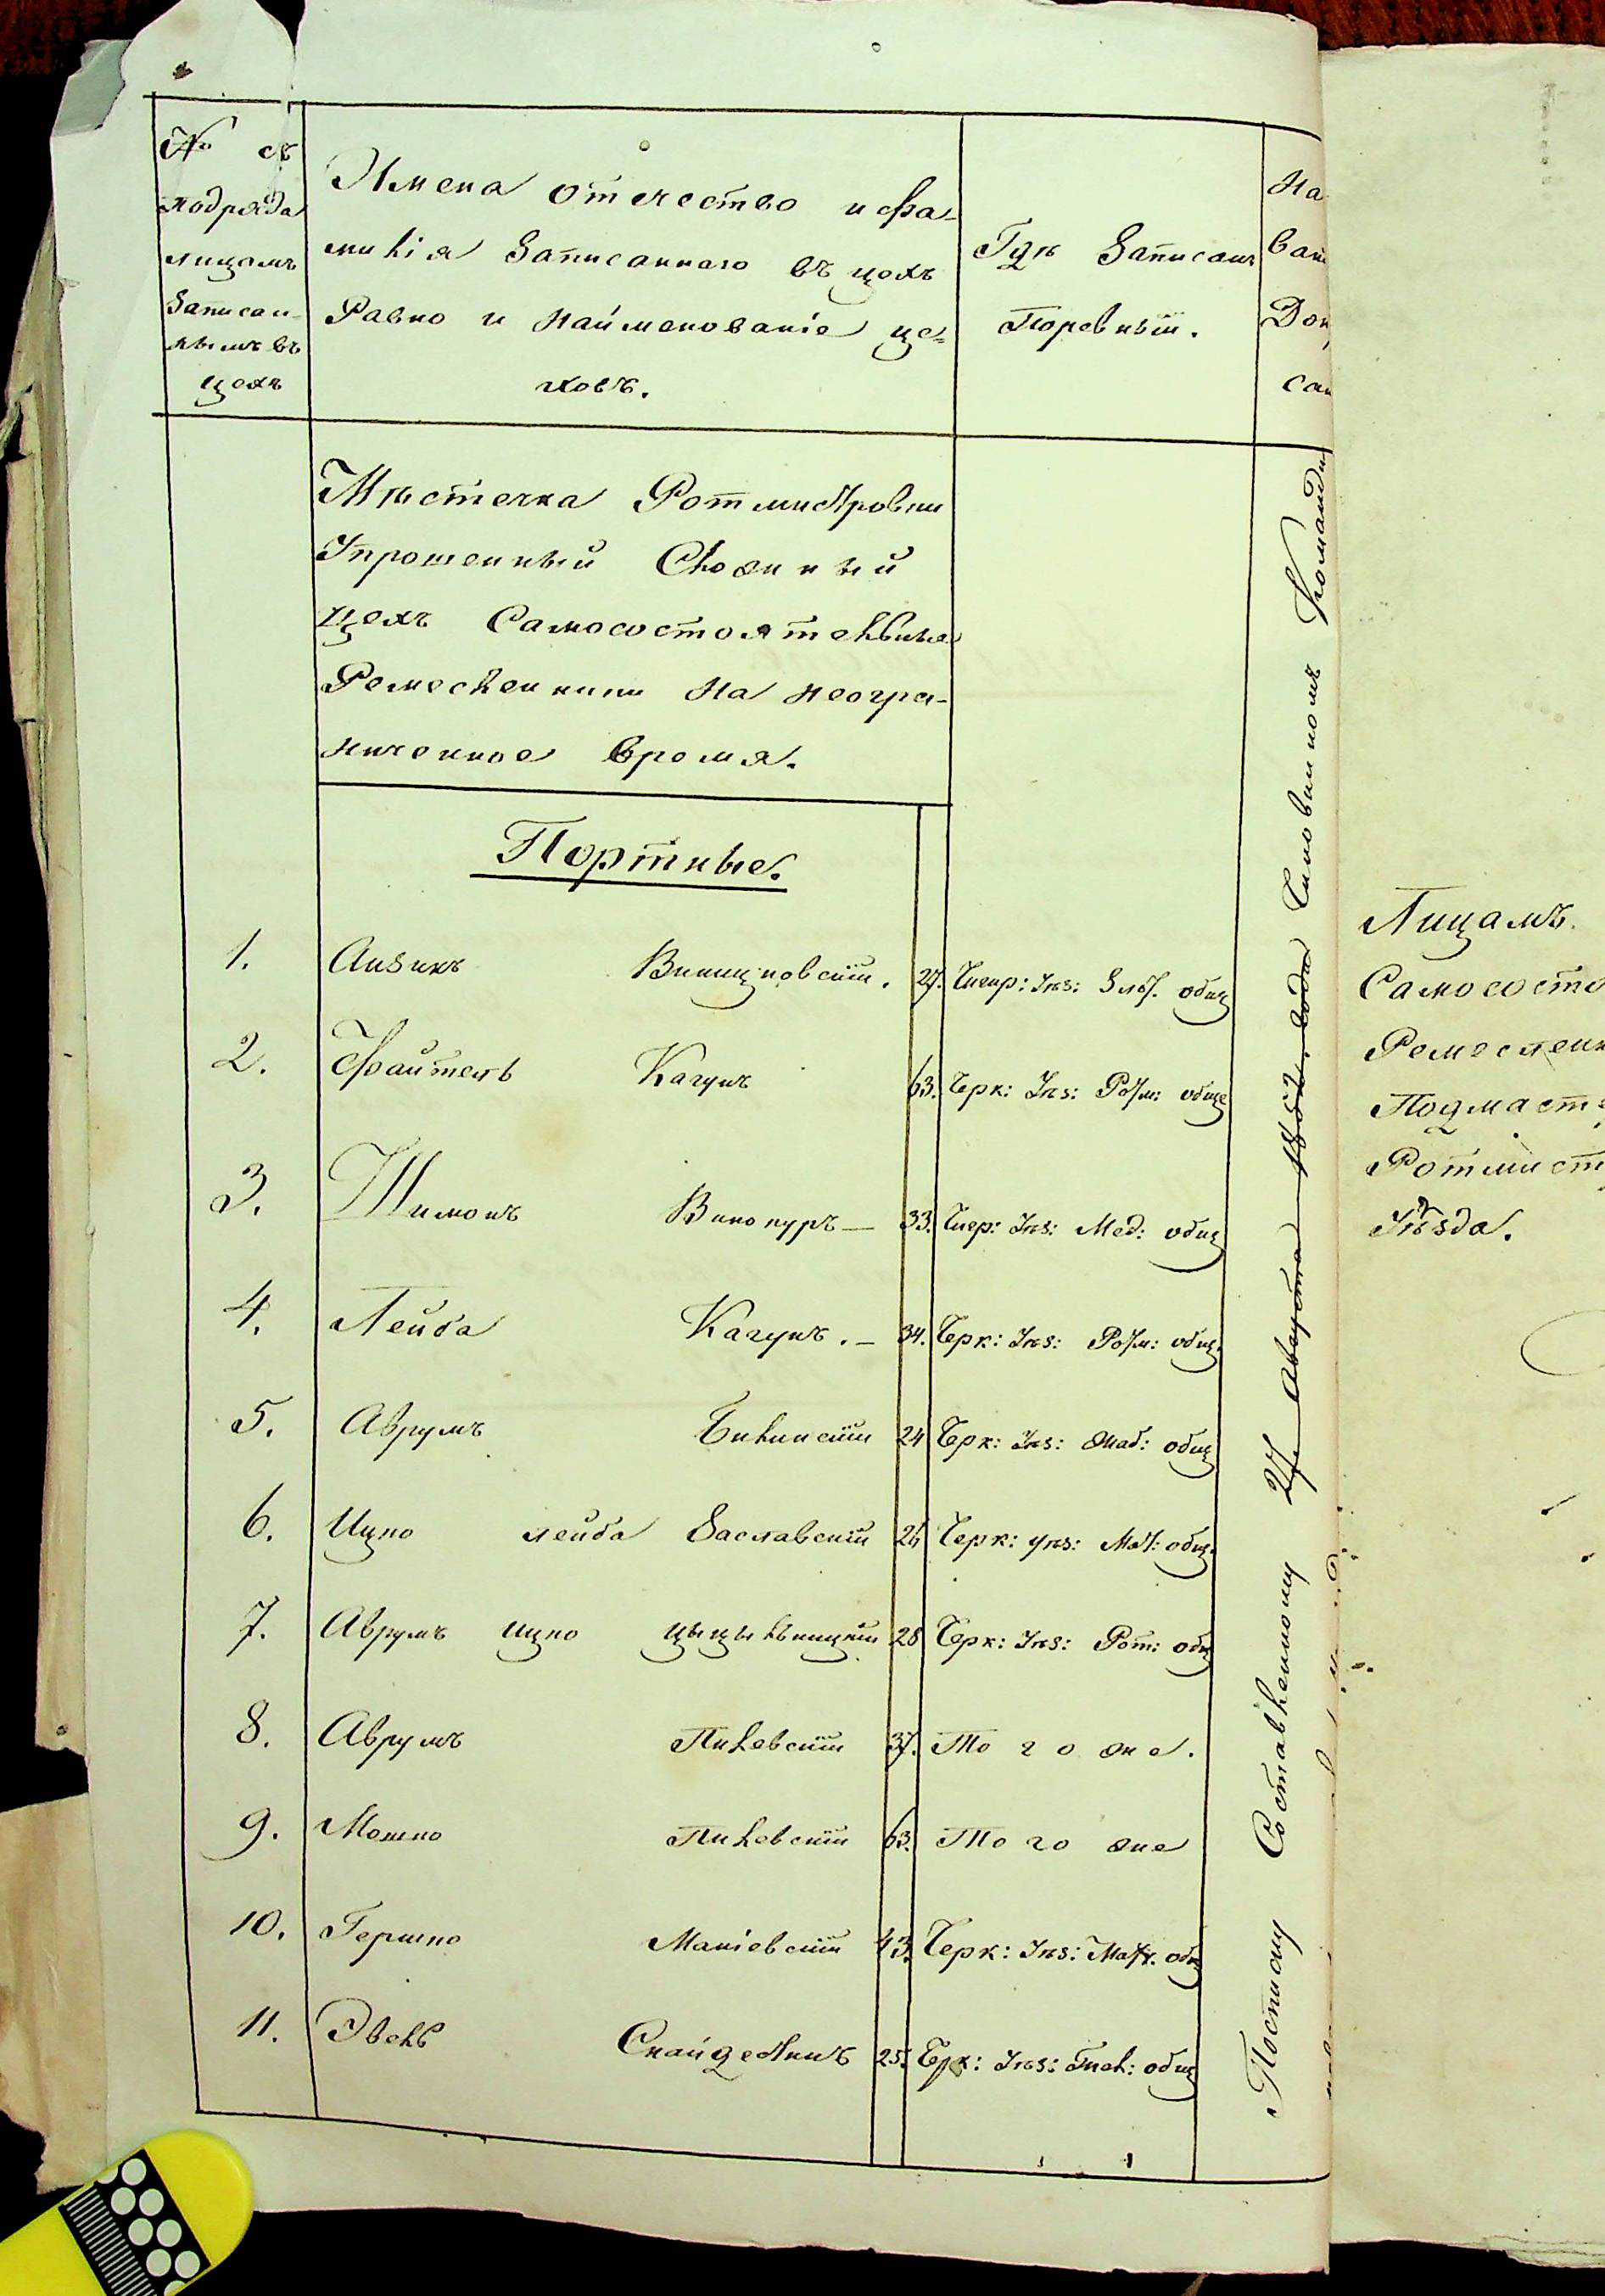 № съ
подряда
лицамъ
записан-
нымъ въ
цехъ
Имена отечество и фа-
милія Записаннаго въ цехъ
Равно и Наименованіе це-
ховъ.
Гдѣ Записанъ
По ревизіи.
На
Мѣстечка Ротмистровки
Упрощенный Сложный
цехъ Самосостоятельные
Ремесленники на неогра-
ниченное время.
Портные.
1. Айзикъ 27. Чигир: Уѣз: Злат. общ
2. Файтель Кагунъ 63. Черк: Уѣз: Ротм: обще
3. Шимонъ Винокуръ — 33. Чигр: Уѣз: Мед: общ
4. Лейба Кагунъ. — 34. Черк: Уѣз: Ротм: общ.
5. Аврумъ Билинскій 24 Черк: Уѣз: Жаб: общ
6. Ицко лейба Заславскій 26 Черк: уѣз: общ.
7. Аврумъ ицко цыцыльницкій 28 Черк: Уѣз: Рот: общ
8. Аврумъ Пилевскій 37. Того же.
9. Мошко Пилевскій 63. Того же
10. Гершко Маніевскій 43. Черк: Уѣз: общ
11. Эвель 25. Черк: Уѣз: общ
Посписку Составленному 27 августа 1852 года Чиновникомъ
Лицамъ.
Самососто
Ремеслен
Подмаст
Ротмист
Уѣзда.